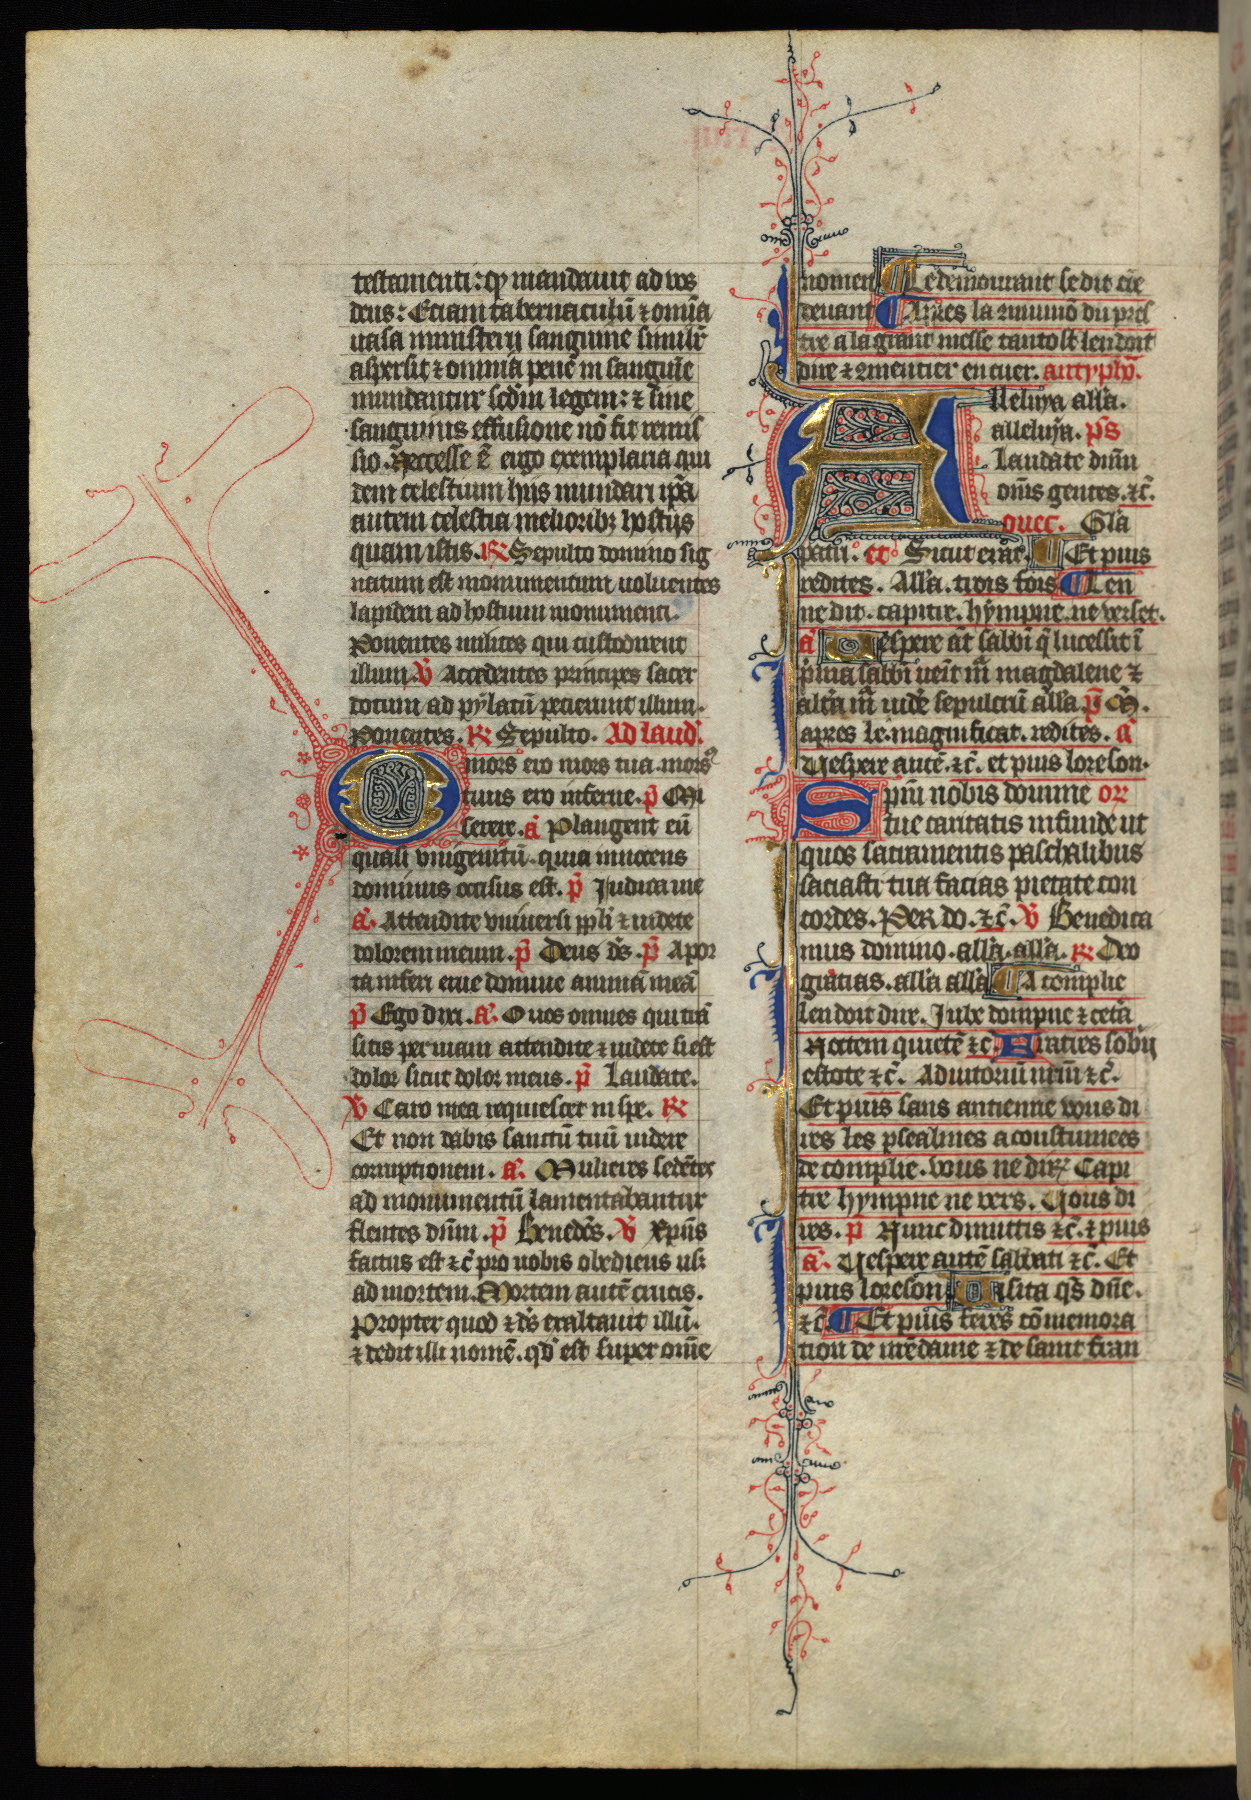 testamenti: q̄ mandauit ad vos
deus: Eciam tabernaculū ⁊ om̄ia
uasa ministerij sanguine simulr̄
aspersit ⁊ omnia pene in sanguīe
mundantur scd̄m legem: ⁊ sine
sanguinis effusione nō fit remis
sio. Necesse ē ergo exemplaria qui
dem celestium hijs mundari ip̄a
autem celestia melioribꝫ hostijs
quam istis. R Sepulto domino sig
natum est monumentum uoluentes
lapidem ad hostium monumenti.
Ponentes milites qui custodirent
illum. V Accedentes principes sacer
dotum ad pylatū pecierunt illum.
Ponentes. R Sepulto. Ad laud'.
O mors ero mors tua mors⁹
tuus ero inferne. p̄ Mi
serere. a Plangent eū
quasi vnigenitū quia innocens
dominus occisus est. p̄ Judica me
a. Attendite vniuersi ppl̄i ⁊ uidete
dolorem meum. p̄ Deus ds̄. p̄ A por
ta inferi erue domine animā meā
p̄ Ego dixi. a. O uos omnes qui trā
sitis per uiam attendite ⁊ uidete si est
dolor sicut dolor meus. p̄ Laudate.
V Caro mea requiescet in spe. R
Et non dabis sanctū tuū uidere
corruptionem. a. Mulieres sedētes
ad monumentū lamentabantur
flentes dn̄m. p̄ Benedc̄s. V xp̄us
factus est ⁊c̄ pro nobis obediens usꝫ
ad mortem. Mortem autē crucis.
Propter quod ⁊ ds̄ exaltauit illū.
⁊ dedit illi nomē. qd̄ est super om̄e
nomen ¶ Le demourant se dit cōe
deuant ¶ Apres la 9munio du pres
tre a la grant messe tantost len doit
dire ⁊ 9mencier en cuer. antyphō.
Alleluya all'a.
alleluya. p̄s
Laudate dn̄m
om̄s gentes. ⁊c̄.
Gl'a
patri. et Sicut erat. ¶ Et puis
redites. All'a. trois fois ¶ Len
ne dit. capitre. hympne. ne verset.
a Vespere āt sabbi q̄ lucessit ī
p̄ma sabbi ueīt m̄ magdalene ⁊
alt'a m̄ uidē sepulcrū all'a p̄ M.
apres le. magnificat. redites. a
Vespere autē. ⁊c̄. et puis loreson.
Spm̄ nobis domine or
tue caritatis infunde ut
quos sacramentis paschalibus
saciasti tua facias pietate con
cordes. Per do. ⁊c̄. V Benedica
mus domino. all'a. all'a. R Deo
gratias. all'a all'a ¶ A complie
len doit dire. Jube dompne ⁊ cetā
Noctem quietē ⁊c̄. Fratres sobrij
estote ⁊c̄. Adiutoriū nr̄m ⁊c̄.
Et puis sans antienne vous di
res les psealmes acoustumees
de complie. vous ne dirꝫ Capi
tre hympne ne vers. Vous di
res. p̄ Nunc dimittis ⁊c̄. ⁊ puis
a. Vespere autē sabbati ⁊c̄. Et
puis loreson Visita qs̄ dn̄e.
⁊c̄. ¶ Et puis feres cōmemora
tion de nr̄e dame ⁊ de saint fran